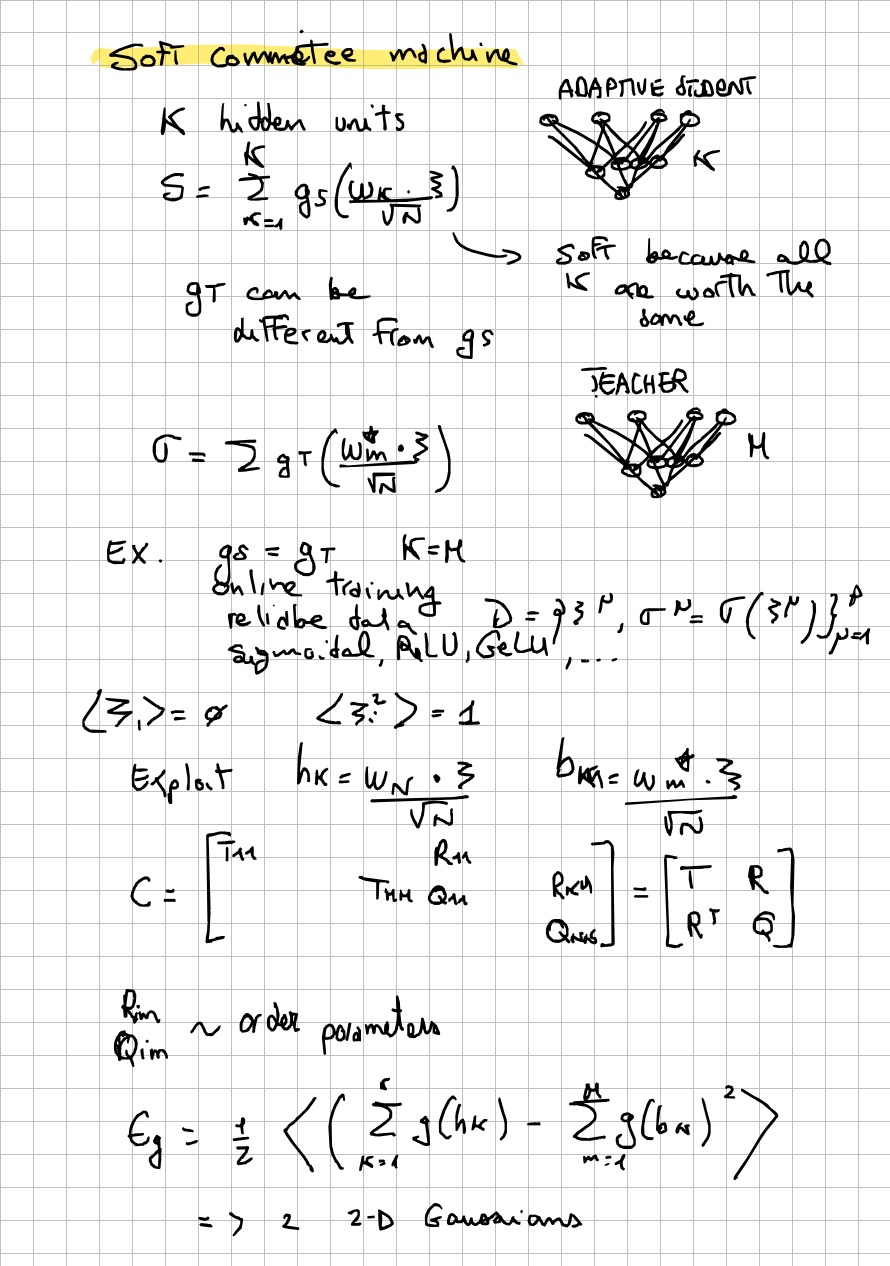 Soft commetee machine
ADAPTIVE STUDENT
K hidden units
K
S = Σ_{K=1}^{K} gs(w_K · ξ / √N)
→ Soft because all
K are worth the
same
gT can be
different from gs
TEACHER
σ = Σ gT(w*_m · ξ / √N)
M
Ex. gs = gT K=M
online training
data D = {ξ^μ, σ^μ = σ(ξ^μ)}_{μ=1}^P
sigmoidal, ReLU, GeLU, ...
<ξ_i> = ø <ξ_i²> = 1
Exploit h_K = w_N · ξ / √N b_m = w*_m · ξ / √N
C = [T_11 R_11 T_MM Q_11 R_KM Q_KK] = [T R R^T Q]
R_im
Q_im ~ order parameters
ϵ_g = 1/2 < ( Σ_{K=1}^{K} g(h_K) - Σ_{m=1}^{M} g(b_K) )² >
=> 2 2-D Gaussians